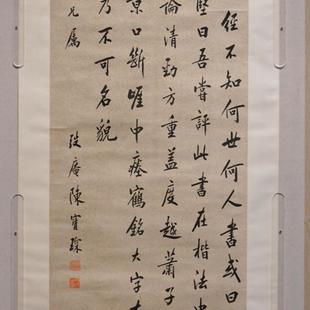 經不知何世何人書或曰
堅曰吾嘗評此書在楷法中
論清勁方重蓋度越蕭子
京口斷崖中瘞鶴銘大字右
乃不可名貌
弢庵陳寶琛
兄屬